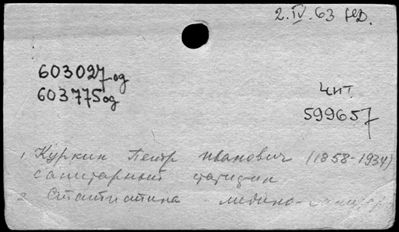 2.IV.63
603027 од
603775 од
чит
599657
1. Куркин Петр Иванович (1858-1934)
санитарный
2. Статистика медико-санитар